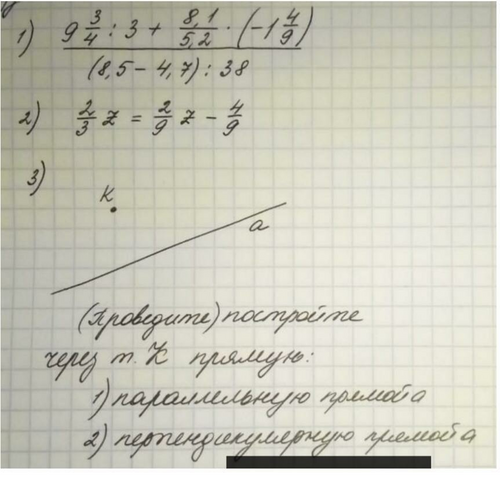 1) 9 3/4 : 3 + 8,1/5,2 · (-1 4/9)
(8,5 - 4,7) : 38
2) 2/3 z = 2/9 z - 4/9
3)
К
а
(Проведите) постройте
через т. К прямую:
1) параллельную прямой а
2) перпендикулярную прямой а